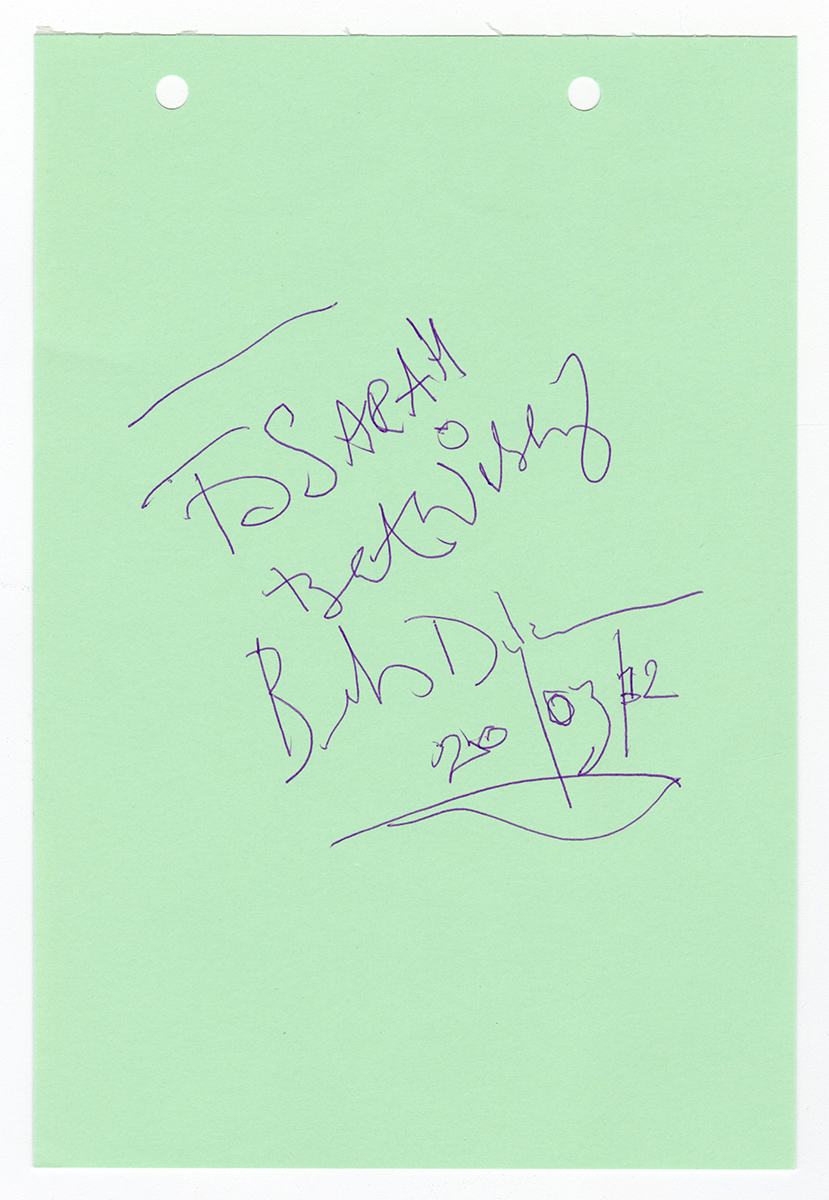 To SARAH
Best Wishes
Bob Dylan
20/03/12